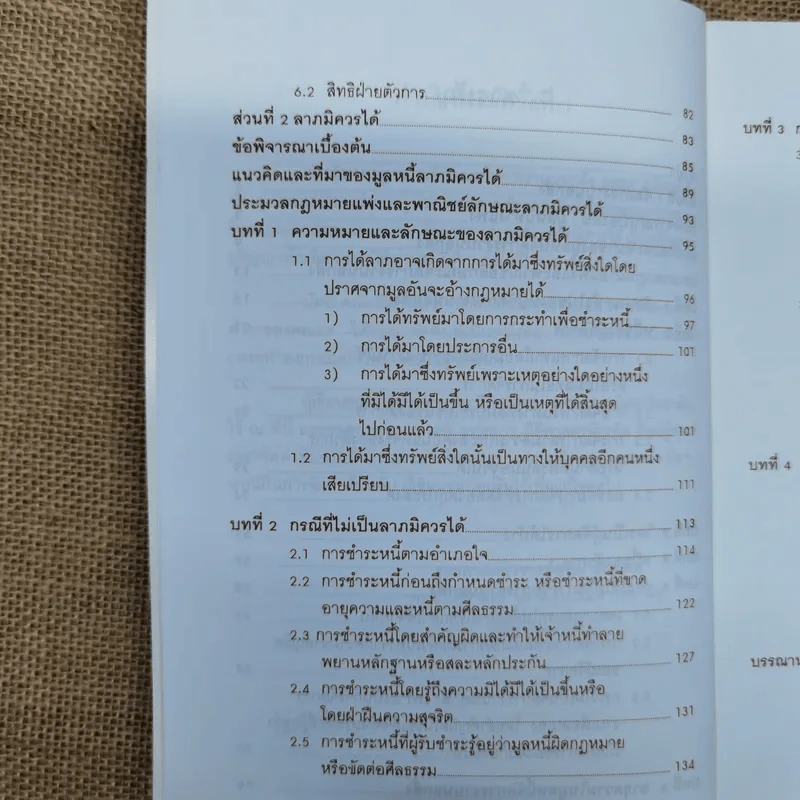 6.2 สิทธิฝ่ายตัวการ 82
ส่วนที่ 2 ลาภมิควรได้ 83
ข้อพิจารณาเบื้องต้น 85
แนวคิดและที่มาของมูลหนี้ลาภมิควรได้ 89
ประมวลกฎหมายแพ่งและพาณิชย์ลักษณะลาภมิควรได้ 93
บทที่ 1 ความหมายและลักษณะของลาภมิควรได้ 95
1.1 การได้ลาภอาจเกิดจากการได้มาซึ่งทรัพย์สิ่งใดโดย
ปราศจากมูลอันจะอ้างกฎหมายได้ 96
1) การได้ทรัพย์มาโดยการกระทำเพื่อชำระหนี้ 97
2) การได้มาโดยประการอื่น 101
3) การได้มาซึ่งทรัพย์เพราะเหตุอย่างใดอย่างหนึ่ง
ที่มิได้มีได้เป็นขึ้น หรือเป็นเหตุที่ได้สิ้นสุด
ไปก่อนแล้ว 101
1.2 การได้มาซึ่งทรัพย์สิ่งใดนั้นเป็นทางให้บุคคลอีกคนหนึ่ง
เสียเปรียบ 111
บทที่ 2 กรณีที่ไม่เป็นลาภมิควรได้ 113
2.1 การชำระหนี้ตามอำเภอใจ 114
2.2 การชำระหนี้ก่อนถึงกำหนดชำระ หรือชำระหนี้ที่ขาด
อายุความและหนี้ตามศีลธรรม 122
2.3 การชำระหนี้โดยสำคัญผิดและทำให้เจ้าหนี้ทำลาย
พยานหลักฐานหรือสละหลักประกัน 127
2.4 การชำระหนี้โดยรู้ถึงความมิได้มีได้เป็นขึ้นหรือ
โดยฝ่าฝืนความสุจริต 131
2.5 การชำระหนี้ที่ผู้รับชำระรู้อยู่ว่ามูลหนี้ผิดกฎหมาย
หรือขัดต่อศีลธรรม 134
บทที่ 3
บทที่ 4